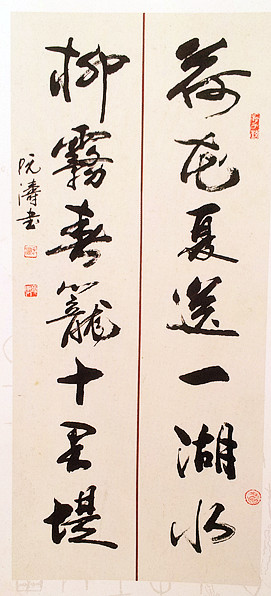 荷花夏送一湖水
柳霧春籠十里堤
阮濤书